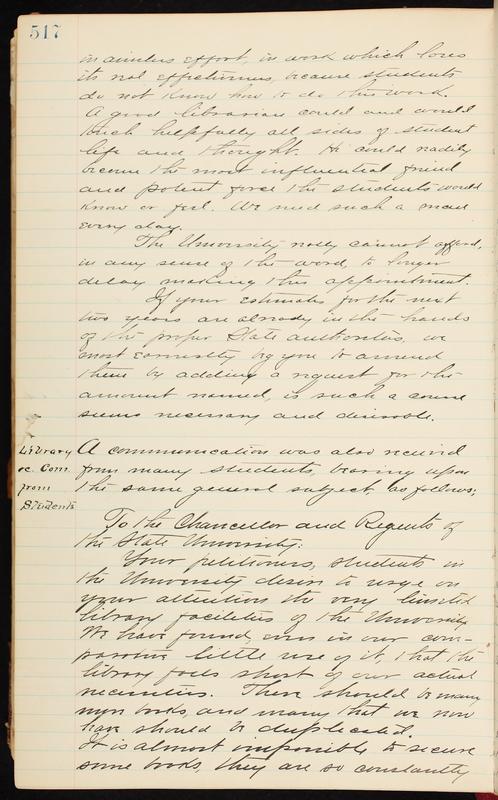 517
in aimless effort, in work which loses
its real effectiveness, because students
do not know how to do this work.
A good librarian could and would
touch helpfully all sides of student
life and thought. He could readily
become the most influential friend
and potent force the students would
know or feel. We need such a man
every day.
The University really cannot afford,
in any sense of the word, to longer
delay making this appointment.
If your estimates for the next
two years are already in the hands
of the proper State authorities, we
most earnestly beg you to amend
them by adding a request for the
amount named, if such a course
seems necessary and desirable.
Library
ec. Com.
from
Students
A communication was also received
from many students, bearing upon
the same general subject, as follows;
To the Chancellor and Regents of
the State University:
Your petitioners, students in
the University desire to urge on
your attention the very limited
library facilities of the University
We have found, even in our com-
parative little use of it, that the
library falls short of our actual
necessities. There should be many
more books, and many that we now
have should be duplicated.
It is almost impossible to secure
some books, they are so constantly